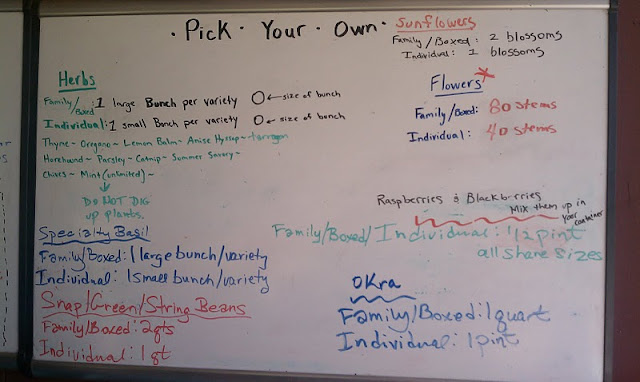 · Pick · Your · Own ·
Sunflowers
Family/Boxed: 2 blossoms
Individual: 1 blossoms
Herbs
Family/Boxed: 1 large Bunch per variety O ← size of bunch
Individual: 1 small Bunch per variety O ← size of bunch
Thyme - Oregano - Lemon Balm - Anise Hyssop - tarragon
Horehound - Parsley - Catnip - Summer Savory -
Chives - Mint (unlimited) -
DO NOT DIG
up plants.
Flowers*
Family/Boxed: 80 stems
Individual: 40 stems
Raspberries & Blackberries
Mix them up in
your container
Family/Boxed/Individual: 1/2 pint
all share sizes
Specialty Basil
Family/Boxed: 1 large bunch/variety
Individual: 1 small bunch/variety
Snap/Green/String Beans
Family/Boxed: 2qts
Individual: 1 qt
OKra
Family/Boxed: 1 quart
Individual: 1 pint